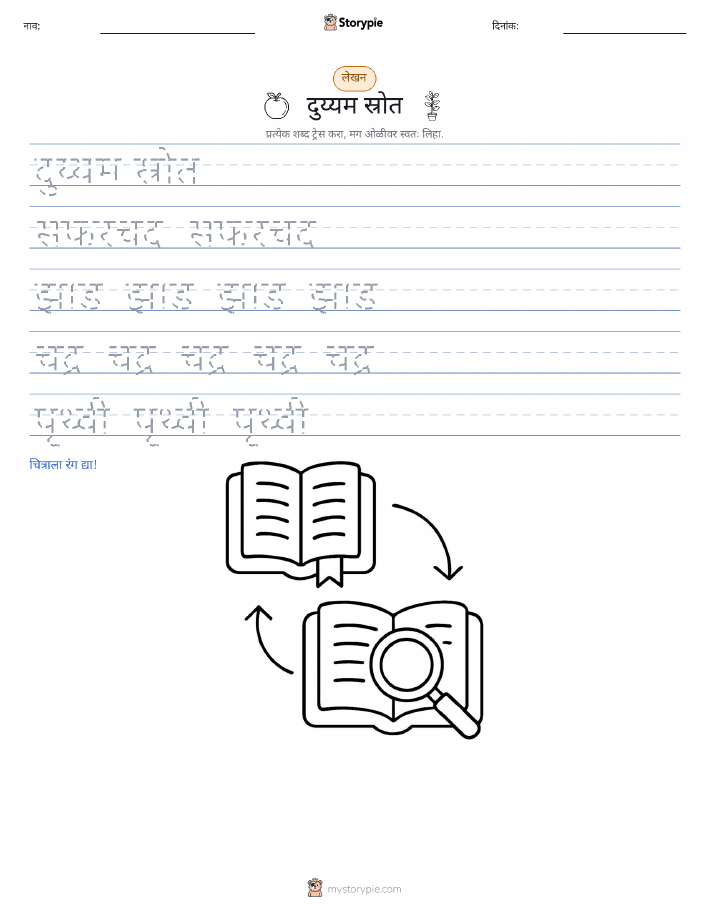 नाव:
Storypie
दिनांक:
लेखन
दुय्यम स्रोत
प्रत्येक शब्द ट्रेस करा, मग ओळीवर स्वतः लिहा.
दुय्यम स्रोत
सफरचद सफरचद
झाड झाड झाड झाड
चद्र चद्र चद्र चद्र चद्र
पृथ्वी पृथ्वी पृथ्वी
चित्राला रंग द्या!
mystorypie.com